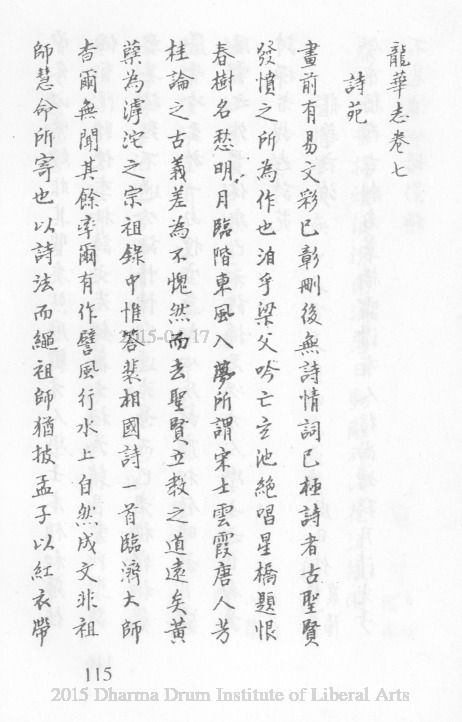 龍華志卷七
詩苑
畫前有易文彩已彰刪後無詩情詞已極詩者古聖賢
發憤之所為作也洎乎梁父吟亡玄池絕唱星橋題恨
春樹名愁明月臨階東風入夢所謂宋士雲霞唐人芳
桂論之古義差為不愧然而去聖賢立教之道遠矣黃
蘗為滹沱之宗祖錄中惟答裴相國詩一首臨濟大師
杳爾無聞其餘率爾有作譬風行水上自然成文非祖
師慧命所寄也以詩法而繩祖師猶披孟子以紅衣帶
115
2015-04-17
2015 Dharma Drum Institute of Liberal Arts